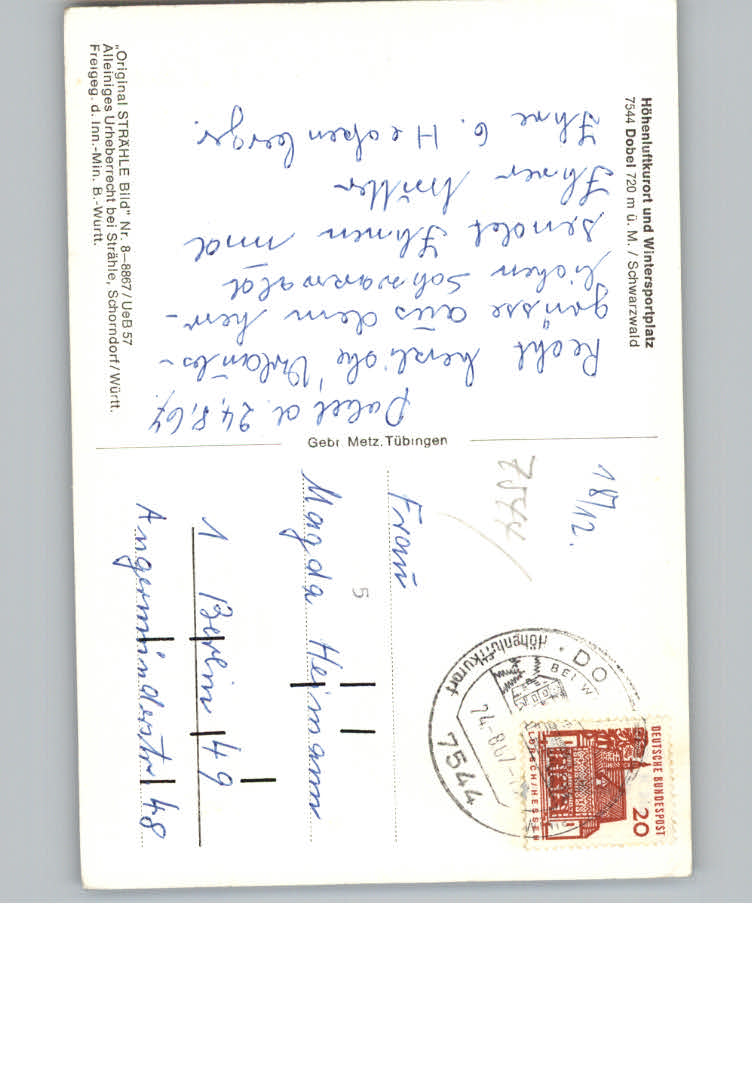 Höhenluftkurort und Wintersportplatz
7544 Dobel 720 m ü. M. / Schwarzwald
Dobel d. 24.8.67.
Recht herzliche Urlaubs-
grüsse aus dem herr-
lichen Schwarzwald
sendet Ihnen und
Ihrer Mutter
Ihre G.
"Original STRÄHLE Bild" Nr. 8–8867/UeB 57
Alleiniges Urheberrecht bei Strähle, Schorndorf/Württ.
Freigeg. d. Inn.-Min. B.-Württ.
Gebr. Metz, Tübingen
18/12.
7544
DEUTSCHE BUNDESPOST
20
LORSCH/HESSEN
DO
BEI W
Höhenluftkurort
7544
24.-8.67
Frau
5
Magda Heimann
1 Berlin 49
Angermünderstr 48